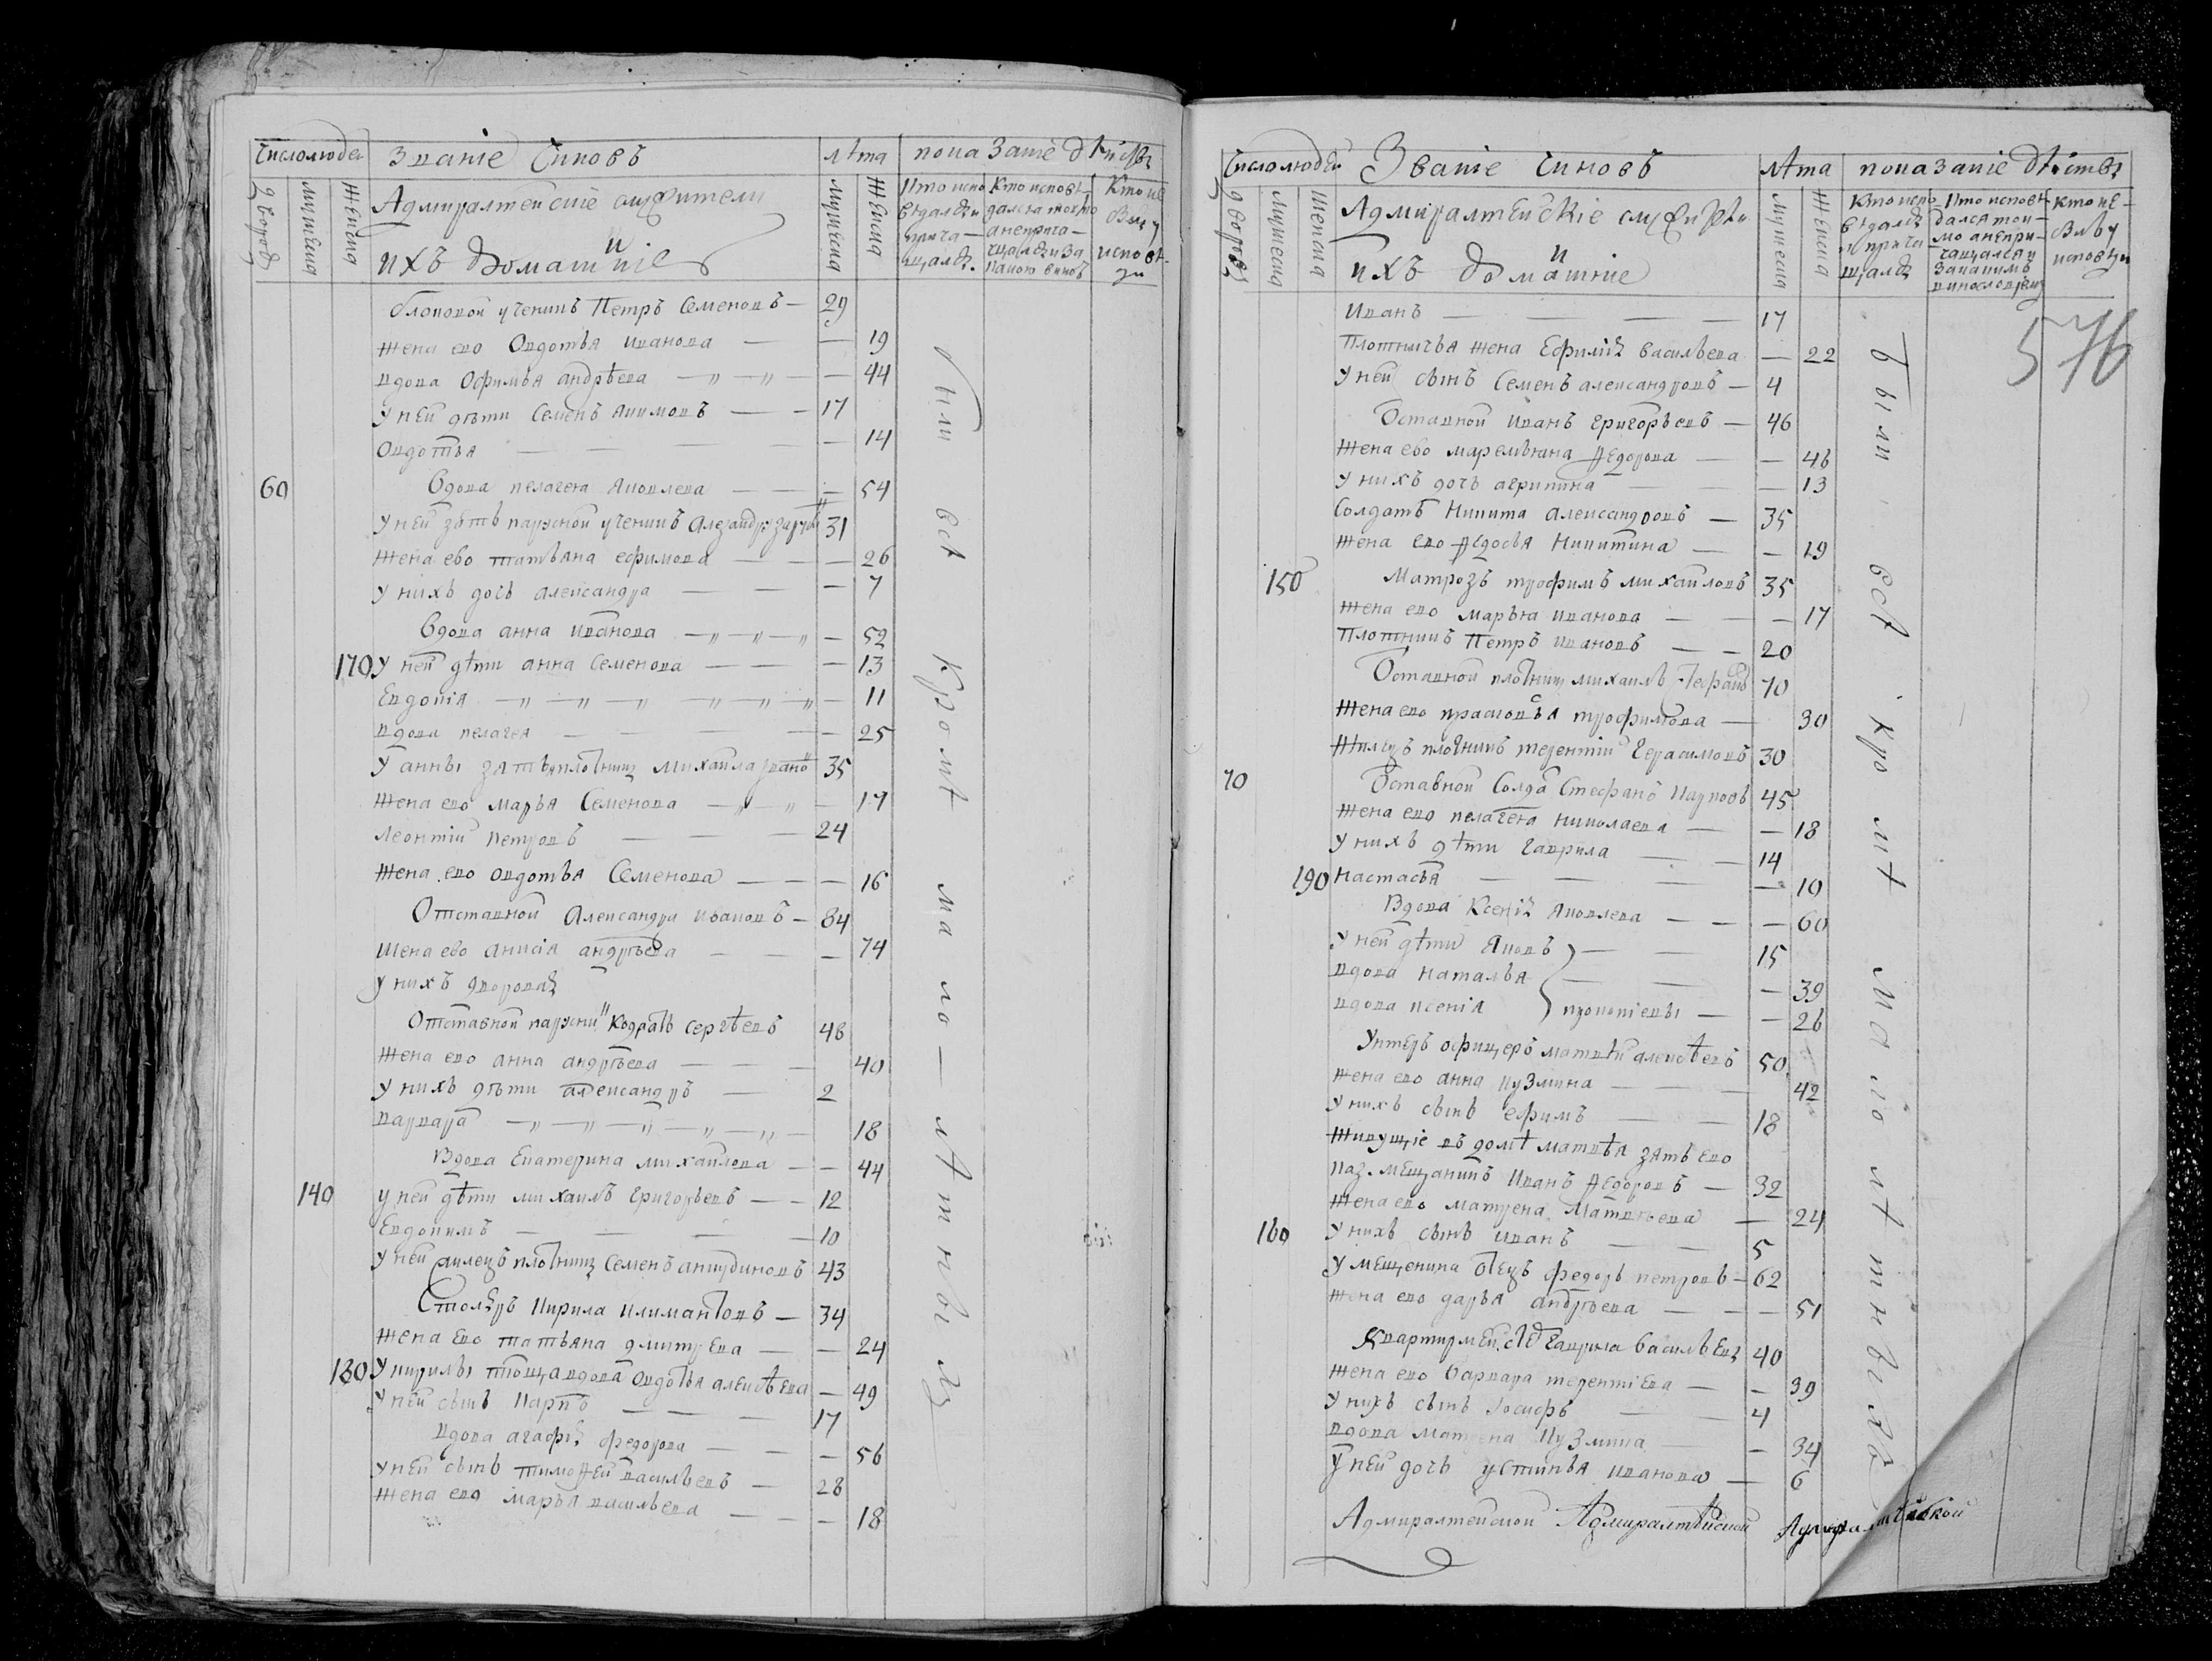 Число людей Званіе Чиновъ лѣта показаніе дѣйствъ
дворовъ мужеска женска Адмиралтейскіе служители и ихъ домашніе мужеска женска
Кто исповѣдался и причащался.
Кто исповѣдался токмо а не причащался и за какою виною
Кто не былъ у исповѣди
блоковой ученикъ Петръ Семеновъ — 29
жена ево Овдотья иванова — — 19
вдова Офимья андрѣева — — 44
у ней дѣти Семенъ якимовъ — 17
Овдотья — — 14
60 Вдова пелагея яковлева — — 54
у ней зять парусной ученикъ 31
жена ево татьяна ефимова — — 26
у нихъ дочь александра — — 7
Вдова анна иванова — — 52
170 у ней дѣти анна семенова — — 13
Евдокія — — 11
вдова пелагея — — 25
у анны зять плотникъ михаила 35
жена ево марья Семенова — — 17
леонтій петровъ — 24
жена ево овдотья Семенова — — 16
Отставной Александръ ивановъ — 84
жена ево анисія андрѣева — — 74
у нихъ дворовая
Отставной парусникъ Кодратъ сергѣевъ 48
жена ево анна андрѣева — 40
у нихъ дѣти александръ — 2
варвара — 18
Вдова Екатерина михайлова — — 44
140 у ней дѣти михаилъ григорьевъ — 12
Евдокимъ — 10
у ней жилецъ плотникъ Семенъ анкудиновъ 43
Столяръ кирила климантовъ — 34
жена ево татьяна дмитрева — — 24
180 у кирилы тюща вдова овдотья алексѣева — 49
у ней сынъ карпъ — 17
вдова агафія федорова — — 56
у ней сынъ тимоѳей васильевъ — 28
жена ево марья васильева — — 18
были всѣ кромѣ мало-лѣтныхъ
Число людей Званіе Чиновъ лѣта показаніе дѣйствъ
дворовъ мужеска женска Адмиралтейскіе служители и ихъ домашніе мужеска женска
Кто исповѣдался и причащался
Кто исповѣдался токмо а не причащался и за какимъ винословіемъ
Кто не былъ у исповѣди
576
Иванъ — 17
Плотничья жена Ефимія васильева — 22
у ней сынъ Семенъ александровъ — 4
Оставной иванъ григорьевъ — 46
жена ево маремьяна ѳедорова — — 46
у нихъ дочь агрипина — — 13
Солдатъ Никита александровъ — 35
жена ево ѳедосья Никитина — — 19
150 Матрозъ трофимъ михайловъ 35
жена ево марья иванова — — 17
Плотникъ Петръ ивановъ — 20
Оставной плотникъ михаилъ 70
жена ево прасковья трофимова — 30
жилецъ плотникъ терентій герасимовъ 30
70 Оставной Солда Стефанъ карповъ 45
жена ево пелагея николаева — — 18
у нихъ дѣти гаврила — 14
190 настасья — — 10
Вдова Ксенія яковлева — — 60
у ней дѣти яковъ — 15
вдова наталья — — 39
вдова ксенія прокопіевы — — 26
Унтеръ офицеръ матвѣй алексѣевъ 50
жена ево анна кузмина — 42
у нихъ сынъ ефимъ — 18
живущіе въ домѣ матвѣя зять ево
каз. мещанинъ иванъ ѳедоровъ — 32
жена ево матрена матвѣева — 24
160 у нихъ сынъ иванъ — 5
у мещенина отецъ федоръ петровъ — 62
жена ево дарья андрѣева — — 51
Квартирмейсте гаврила васильевъ 40
жена ево варвара терентіева — — 39
у нихъ сынъ іосифъ — 4
вдова матрена кузмина — — 34
у ней дочь устинья иванова — 6
были всѣ кромѣ мало лѣтныхъ
Адмиралтейской Адмиралтѣйской